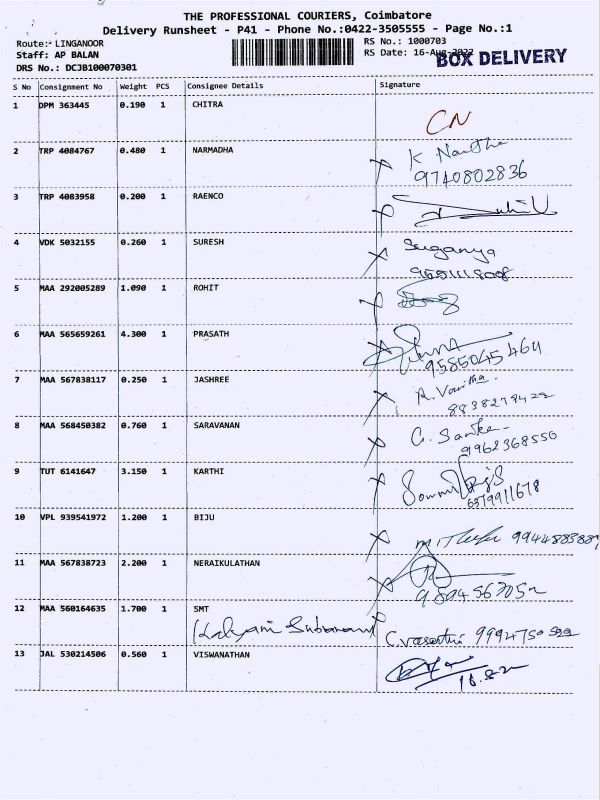 THE PROFESSIONAL COURIERS, Coimbatore
Delivery Runsheet - P41 - Phone No.:0422-3505555 - Page No.:1
Route:- LINGANOOR
RS No.: 1000703
Staff: AP BALAN
RS Date: 16-Aug-2022
BOX DELIVERY
DRS No.: DCJB100070301
S No Consignment No Weight PCS Consignee Details Signature
1 DPM 363445 0.190 1 CHITRA
CN
2 TRP 4084767 0.480 1 NARMADHA
K
9740802836
3 TRP 4083958 0.200 1 RAENCO
4 VDK 5032155 0.260 1 SURESH
Suganya
5 MAA 292005289 1.090 1 ROHIT
6 MAA 565659261 4.300 1 PRASATH
9585045464
7 MAA 567838117 0.250 1 JASHREE
8838279422
8 MAA 568450382 0.760 1 SARAVANAN
9962368550
9 TUT 6141647 3.150 1 KARTHI
6379911678
10 VPL 939541972 1.200 1 BIJU
11 MAA 567838723 2.200 1 NERAIKULATHAN
12 MAA 560164635 1.700 1 SMT
C. Vasanthi
13 JAL 530214506 0.560 1 VISWANATHAN